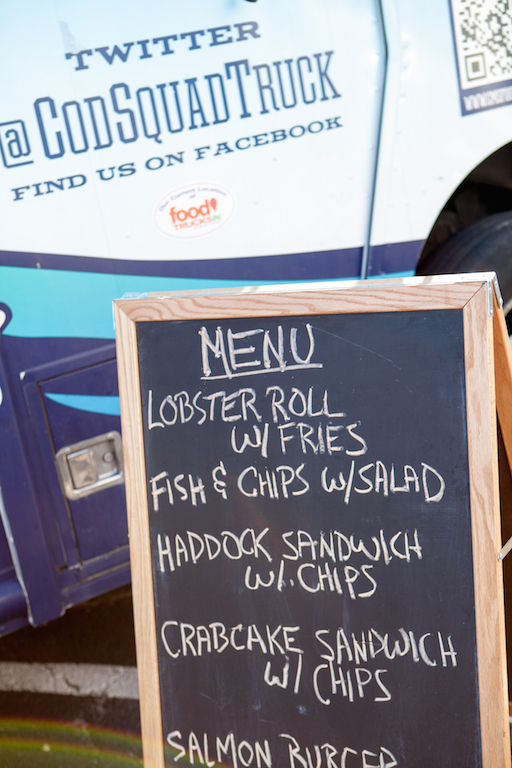 TWITTER
@CODSQUADTRUCK
FIND US ON FACEBOOK
Our Current Location at
food
TRUCKSIN
MENU
LOBSTER ROLL
W/ FRIES
FISH & CHIPS W/SALAD
HADDOCK SANDWICH
W/. CHIPS
CRABCAKE SANDWICH
W/ CHIPS
SALMON BURGER